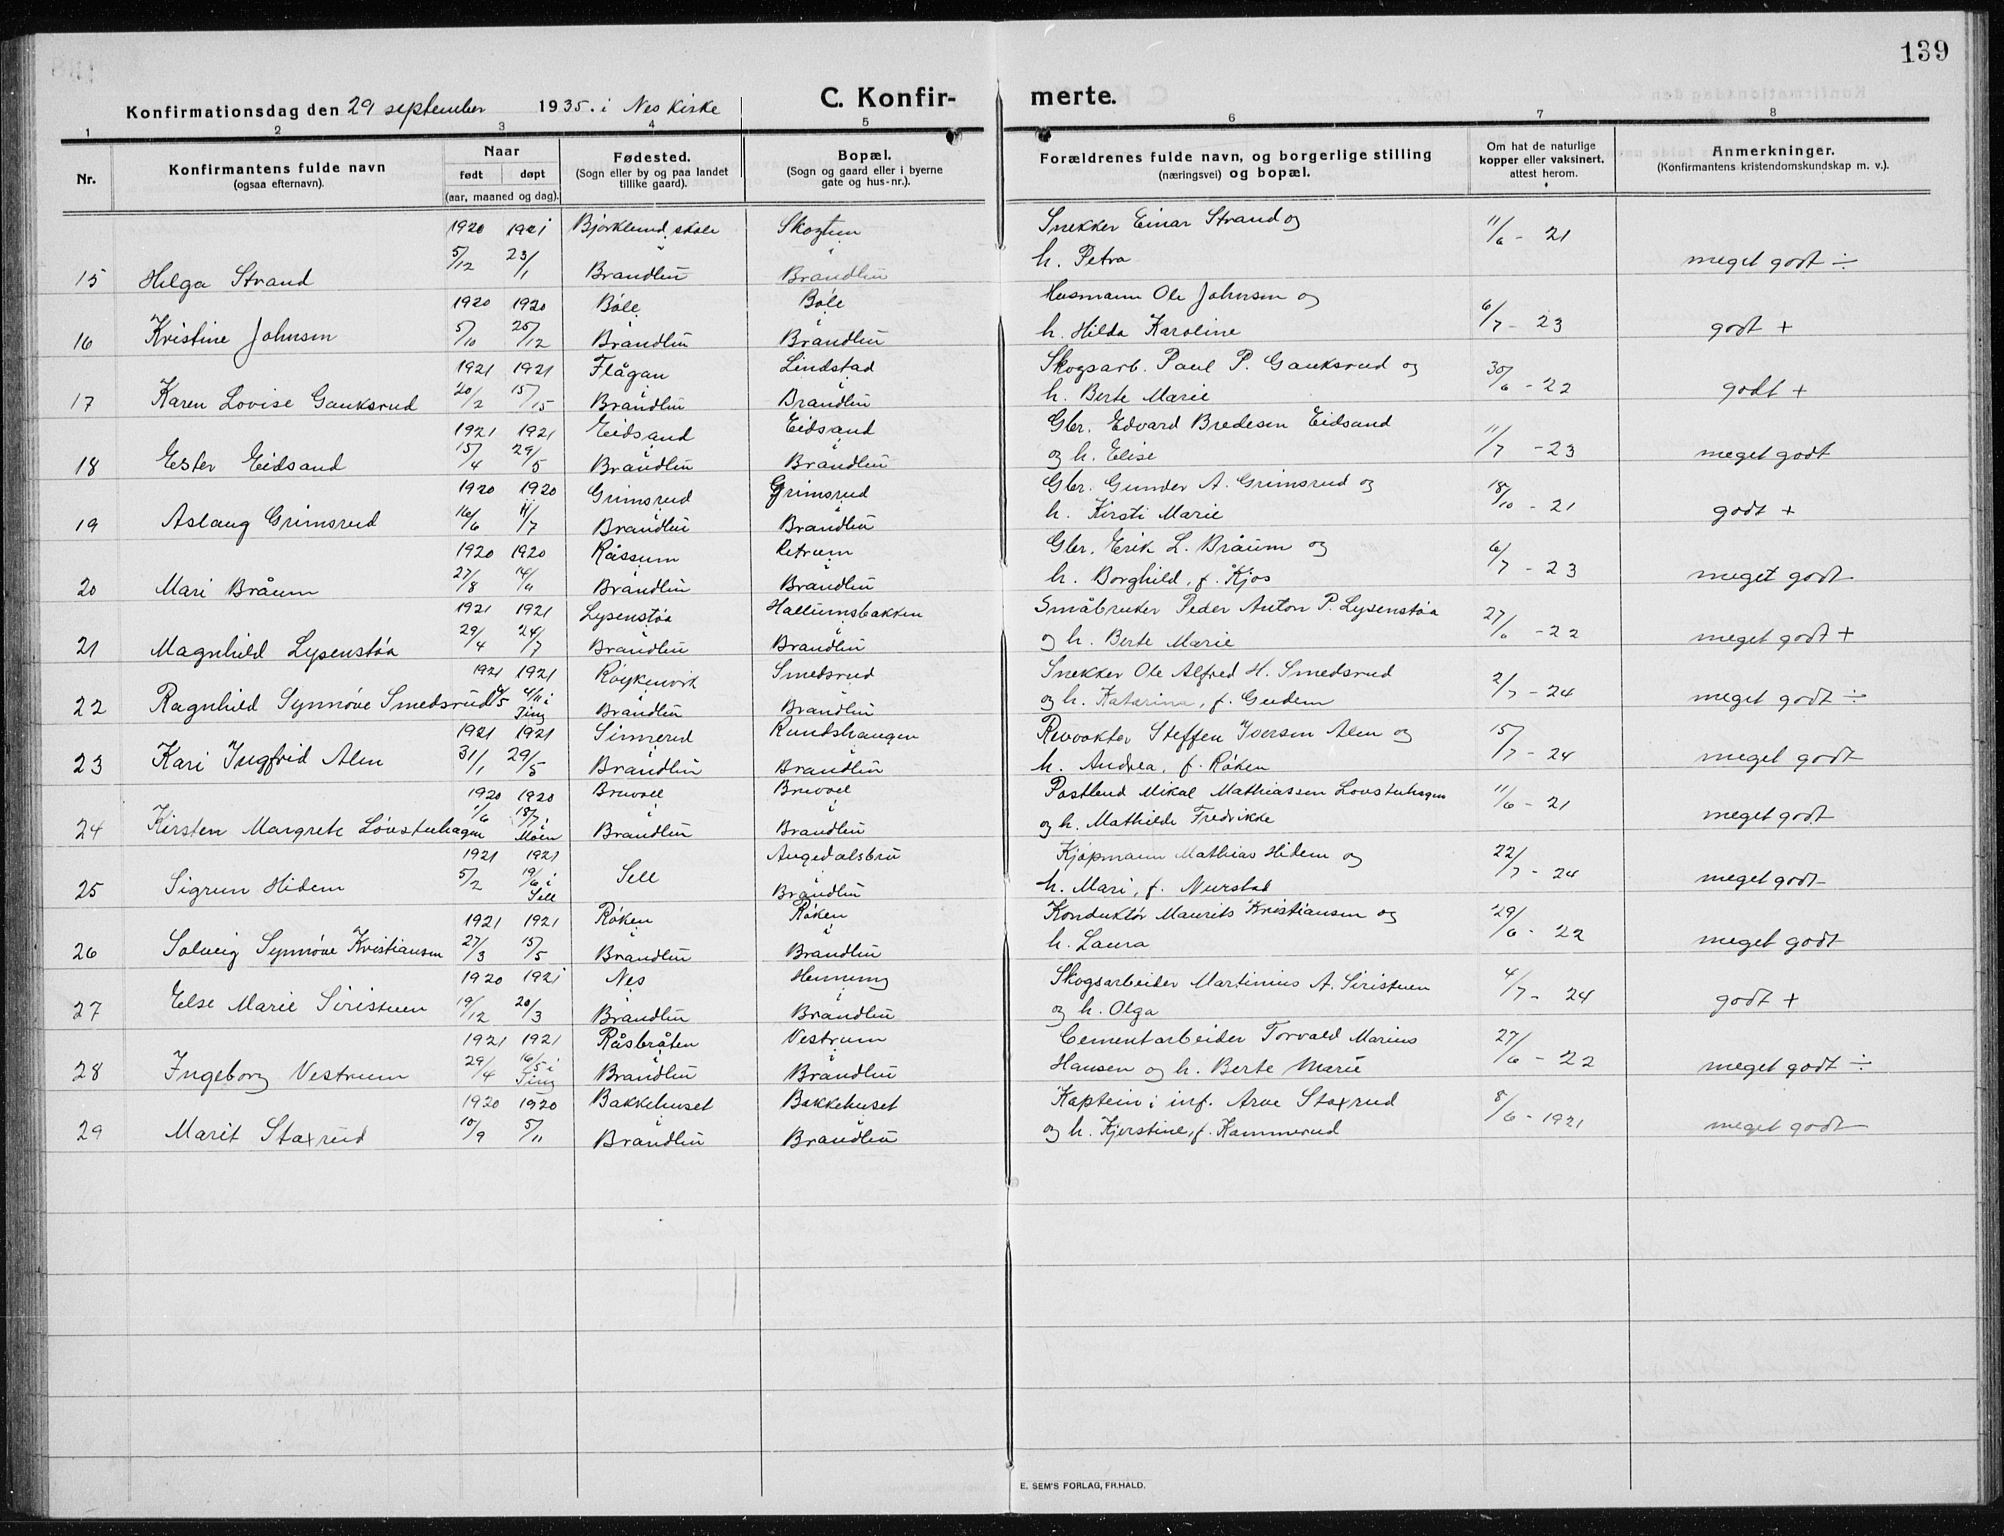 139
Konfirmationsdag den 29 september 1935. i Nes kirke C. Konfir- merte.
1 2 3 4 5 6 7 8
Nr. Konfirmantens fulde navn (ogsaa efternavn). Naar født døpt (aar, maaned og dag). Fødested. (Sogn eller by og paa landet tillike gaard). Bopæl. (Sogn og gaard eller i byerne gate og hus-nr.). Forældrenes fulde navn, og borgerlige stilling (næringsvei) og bopæl. Om hat de naturlige kopper eller vaksinert. attest herom. Anmerkninger. (Konfirmantens kristendomskundskap m. v.).
1920 1921 Bjørklund skole Skogtun Snekker Einar Strand og 11/6 - 21
15 Helga Strand 5/12 23/1 i Brandbu i Brandbu h. Petra meget godt ÷
1920 1920 Bøle Bøle Husmann Ole Johnsen og 6/7 - 23
16 Kristine Johnsen 5/10 25/12 i Brandbu i Brandbu h. Hilda Karoline godt +
1921 1921 Flågan Lindstad Skogsarb. Paul P. Gauksrud og 30/6 - 22
17 Karen Lovise Gauksrud 20/2 15/15 i Brandbu i Brandbu h. Berte Marie godt +
1921 1921 Eidsand Eidsand Gbr. Edvard Bredesen Eidsand 11/7 - 23
18 Ester Eidsand 15/4 29/5 i Brandbu i Brandbu og h. Elise meget godt
1920 1920 Grimsrud Grimsrud Gbr. Gunder A. Grimsrud og 18/10 - 21
19 Aslaug Grimsrud 16/6 11/7 i Brandbu i Brandbu h. Kirsti Marie godt +
1920 1920 Råssum Retrum Gbr. Erik L. Bråum og 6/7 - 23
20 Mari Bråum 27/8 i Brandbu i Brandbu h. Borghild, f. Kjos meget godt
1921 1921 Lysenstøa Hallumsbakken Småbruker Peder Anton P. Lysenstøa 27/6 - 22
21 Magnhild Lysenstøa 29/4 24/7 i Brandbu i Brandbu og h. Berte Marie meget godt +
1921 1921 Røykenvik Smedsrud Snekker Ole Alfred H. Smedsrud 2/7 - 24
22 Ragnhild Synnøve Smedsrud 4/11 i Ting i Brandbu i Brandbu og h. Katarina, f. Gudem meget godt ÷
1921 1921 Sinnerud Rundshaugen Steffen Iversen Alm og 15/7 - 24
23 Kari Ingfrid Alm 31/1 29/5 i Brandbu i Brandbu h. Andrea, f. Røken meget godt
1920 1920 Bruvoll Bruvoll Postbud Mikal Mathiassen Løvstuhagen 11/6 - 21
24 Kirsten Margrete Løvstuhagen 1/6 18/7 i Moen i Brandbu i Brandbu og h. Mathilde Fredrikke meget godt
1921 1921 Augedalsbru Kjøpmann Mathias Hidem og 22/7 - 24
25 Sigrun Hidem 5/2 19/6 i Sell Sell i Brandbu h. Mari, f. Nerstad meget godt
1921 1921 Røken Røken Konduktør Maurits Kristiansen og 29/6 - 22
26 Solveig Synnøve Kristiansen 27/3 15/5 i Brandbu i Brandbu h. Laura meget godt
1920 1921 Nes Henung Skogsarbeider Martinius A. Siristuen 4/7 - 24
27 Else Marie Siristuen 19/12 20/3 i Brandbu i Brandbu og h. Olga godt +
1921 1921 Råsbråten Vestrum Cementarbeider Torvald Marius 27/6 - 22
28 Ingeborg Vestrum 29/4 16/5 i Ting i Brandbu i Brandbu Hansen og h. Berte Marie meget godt ÷
1920 1920 Bakkehuset Bakkehuset Kaptein i inf. Arve Staxrud 8/6 - 1921
29 Marit Staxrud 10/9 5/11 i Brandbu i Brandbu og h. Kjerstine, f. Kammerud meget godt
E. SEM'S FORLAG, FR.HALD.